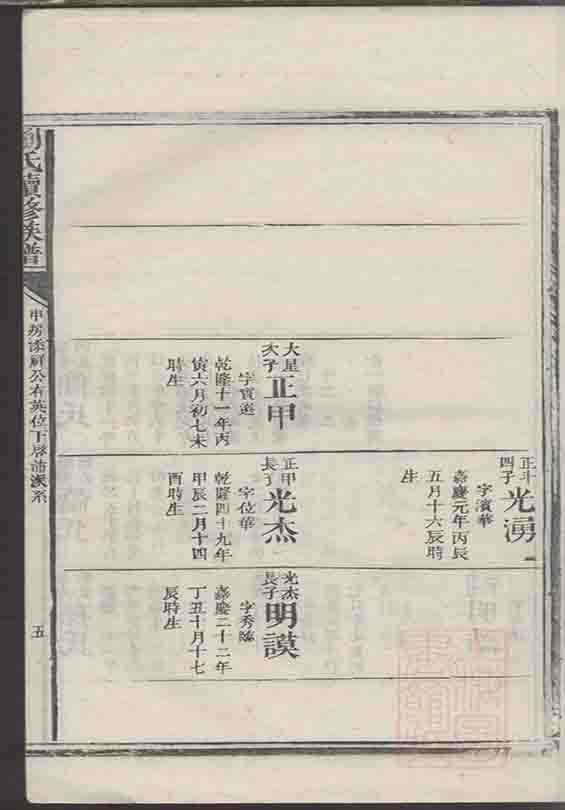 正斗
四子
光湧
字濱華
嘉慶元年丙辰
五月十六辰時
生
大星
次子
正甲
乾隆十一年丙
寅六月初七未
時生
正甲
長子
光杰
字位華
乾隆四十九年
甲辰二月十四
酉時生
光杰
長子
明謨
嘉慶二十二年
丁丑十月十七
辰時生
劉氏續修族譜
公有英位下啓沛派系
五